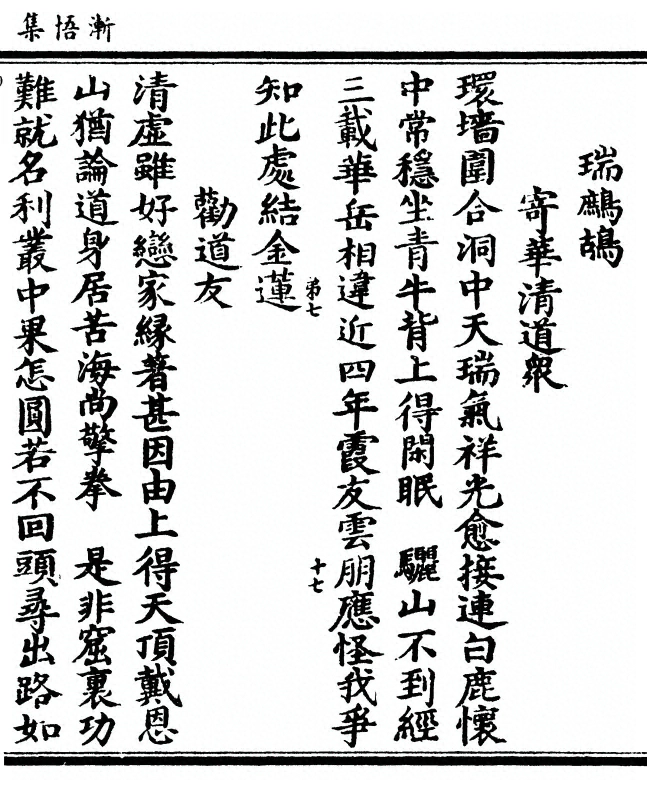 漸悟集
瑞鷓鴣
寄華清道衆
環墻圍合洞中天瑞氣祥光愈接連白鹿懷
中常穩坐青牛背上得閑眠　驪山不到經
三載華岳相違近四年霞友雲朋應怪我爭
知此處結金蓮
第七
十七
勸道友
清虛雖好戀家緣著甚因由上得天頂戴恩
山猶論道身居苦海尚擎拳　是非窟裏功
難就名利叢中果怎圓若不回頭尋出路如